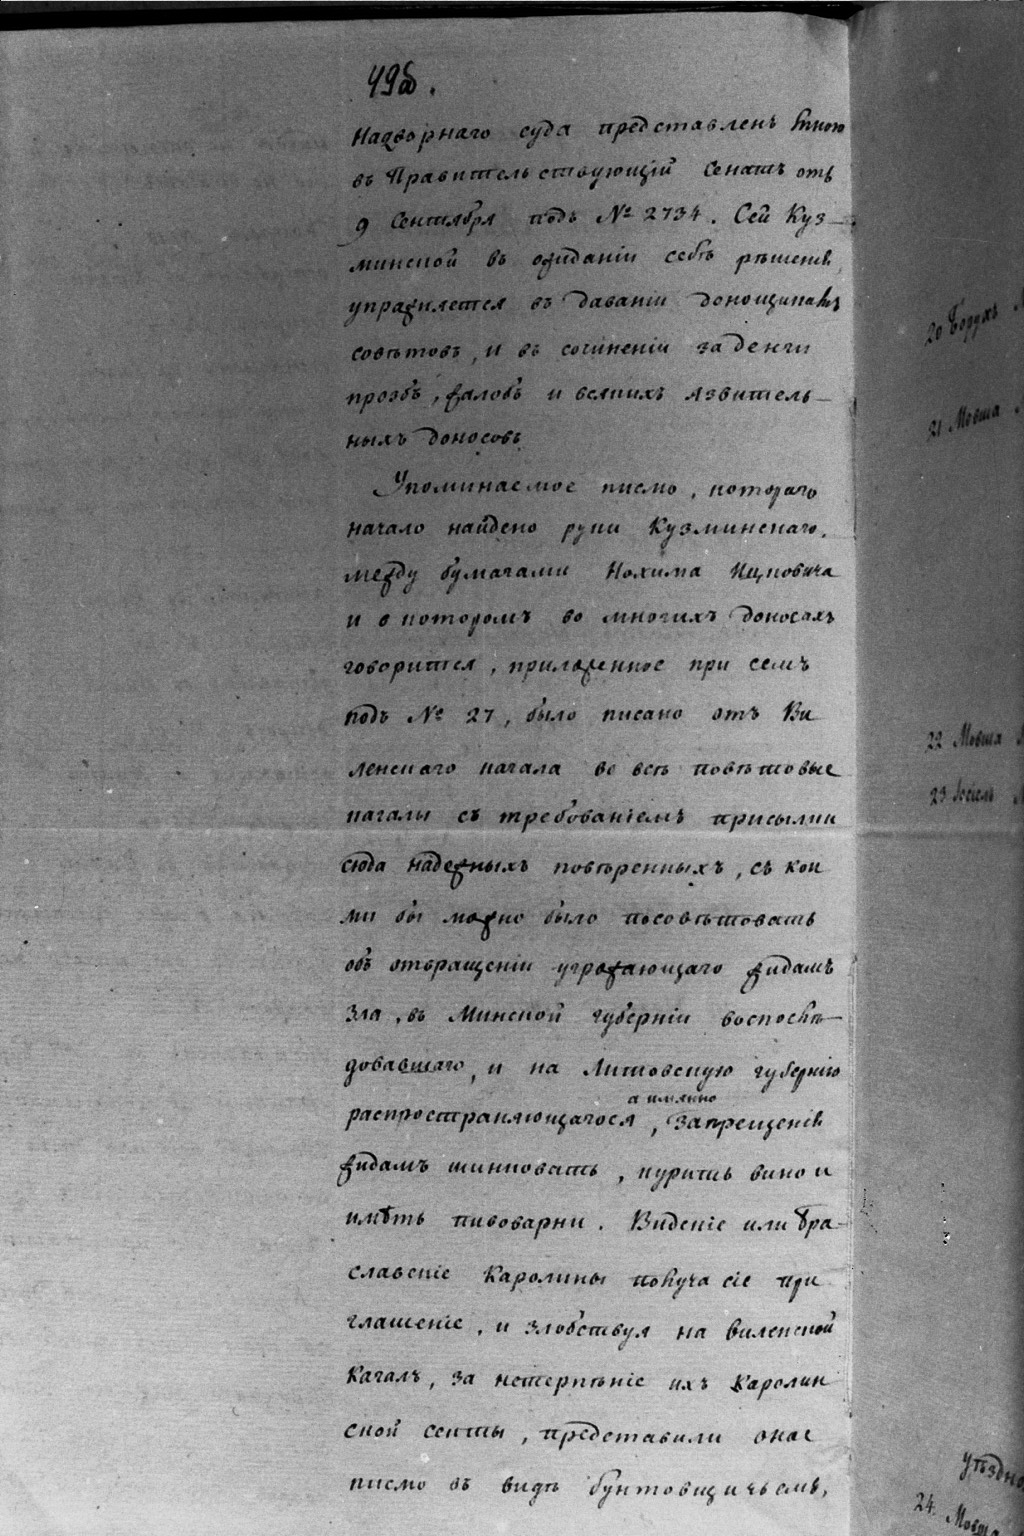 49об.
надворнаго суда представленъ мною
въ Правительствующій Сенатъ отъ
9 Сентября подъ № 2734. Сей Куз-
минской въ ожиданіи себѣ рѣшенія,
упражняется въ даваніи доносщикамъ
совѣтовъ, и въ сочиненіи за денги
прозбъ, жалобъ и всякихъ язвитель-
ныхъ доносовъ
Упоминаемое писмо, котораго
начало найдено руки Кузминскаго,
между бумагами Нохима Ицковича
и о которомъ во многихъ доносахъ
говорится, приложенное при семъ
подъ № 27, было писано отъ Ви
ленскаго кагала во всѣ повѣтовые
кагалы съ требованіемъ присылки
сюда надежныхъ повѣренныхъ, съ кои
ми бы можно было посовѣтовать
объ отвращеніи угрожающаго жидамъ
зла, въ Минской губерніи воспослѣ-
довавшаго, и на Литовскую губернію
а имянно
распространяющагося, запрещенія
жидамъ шинковать, курить вино и
имѣть пивоварни. Видскіе или Бра-
славскіе Каролины получа сіе при
глашеніе, и злобствуя на Виленской
Кагалъ, за нетерпѣніе ихъ Каролин
ской секты, представили оное
писмо въ видѣ бунтовщичьемъ,
20 Борухъ
21 Мовша
22 Мовша
23
24. Мовша